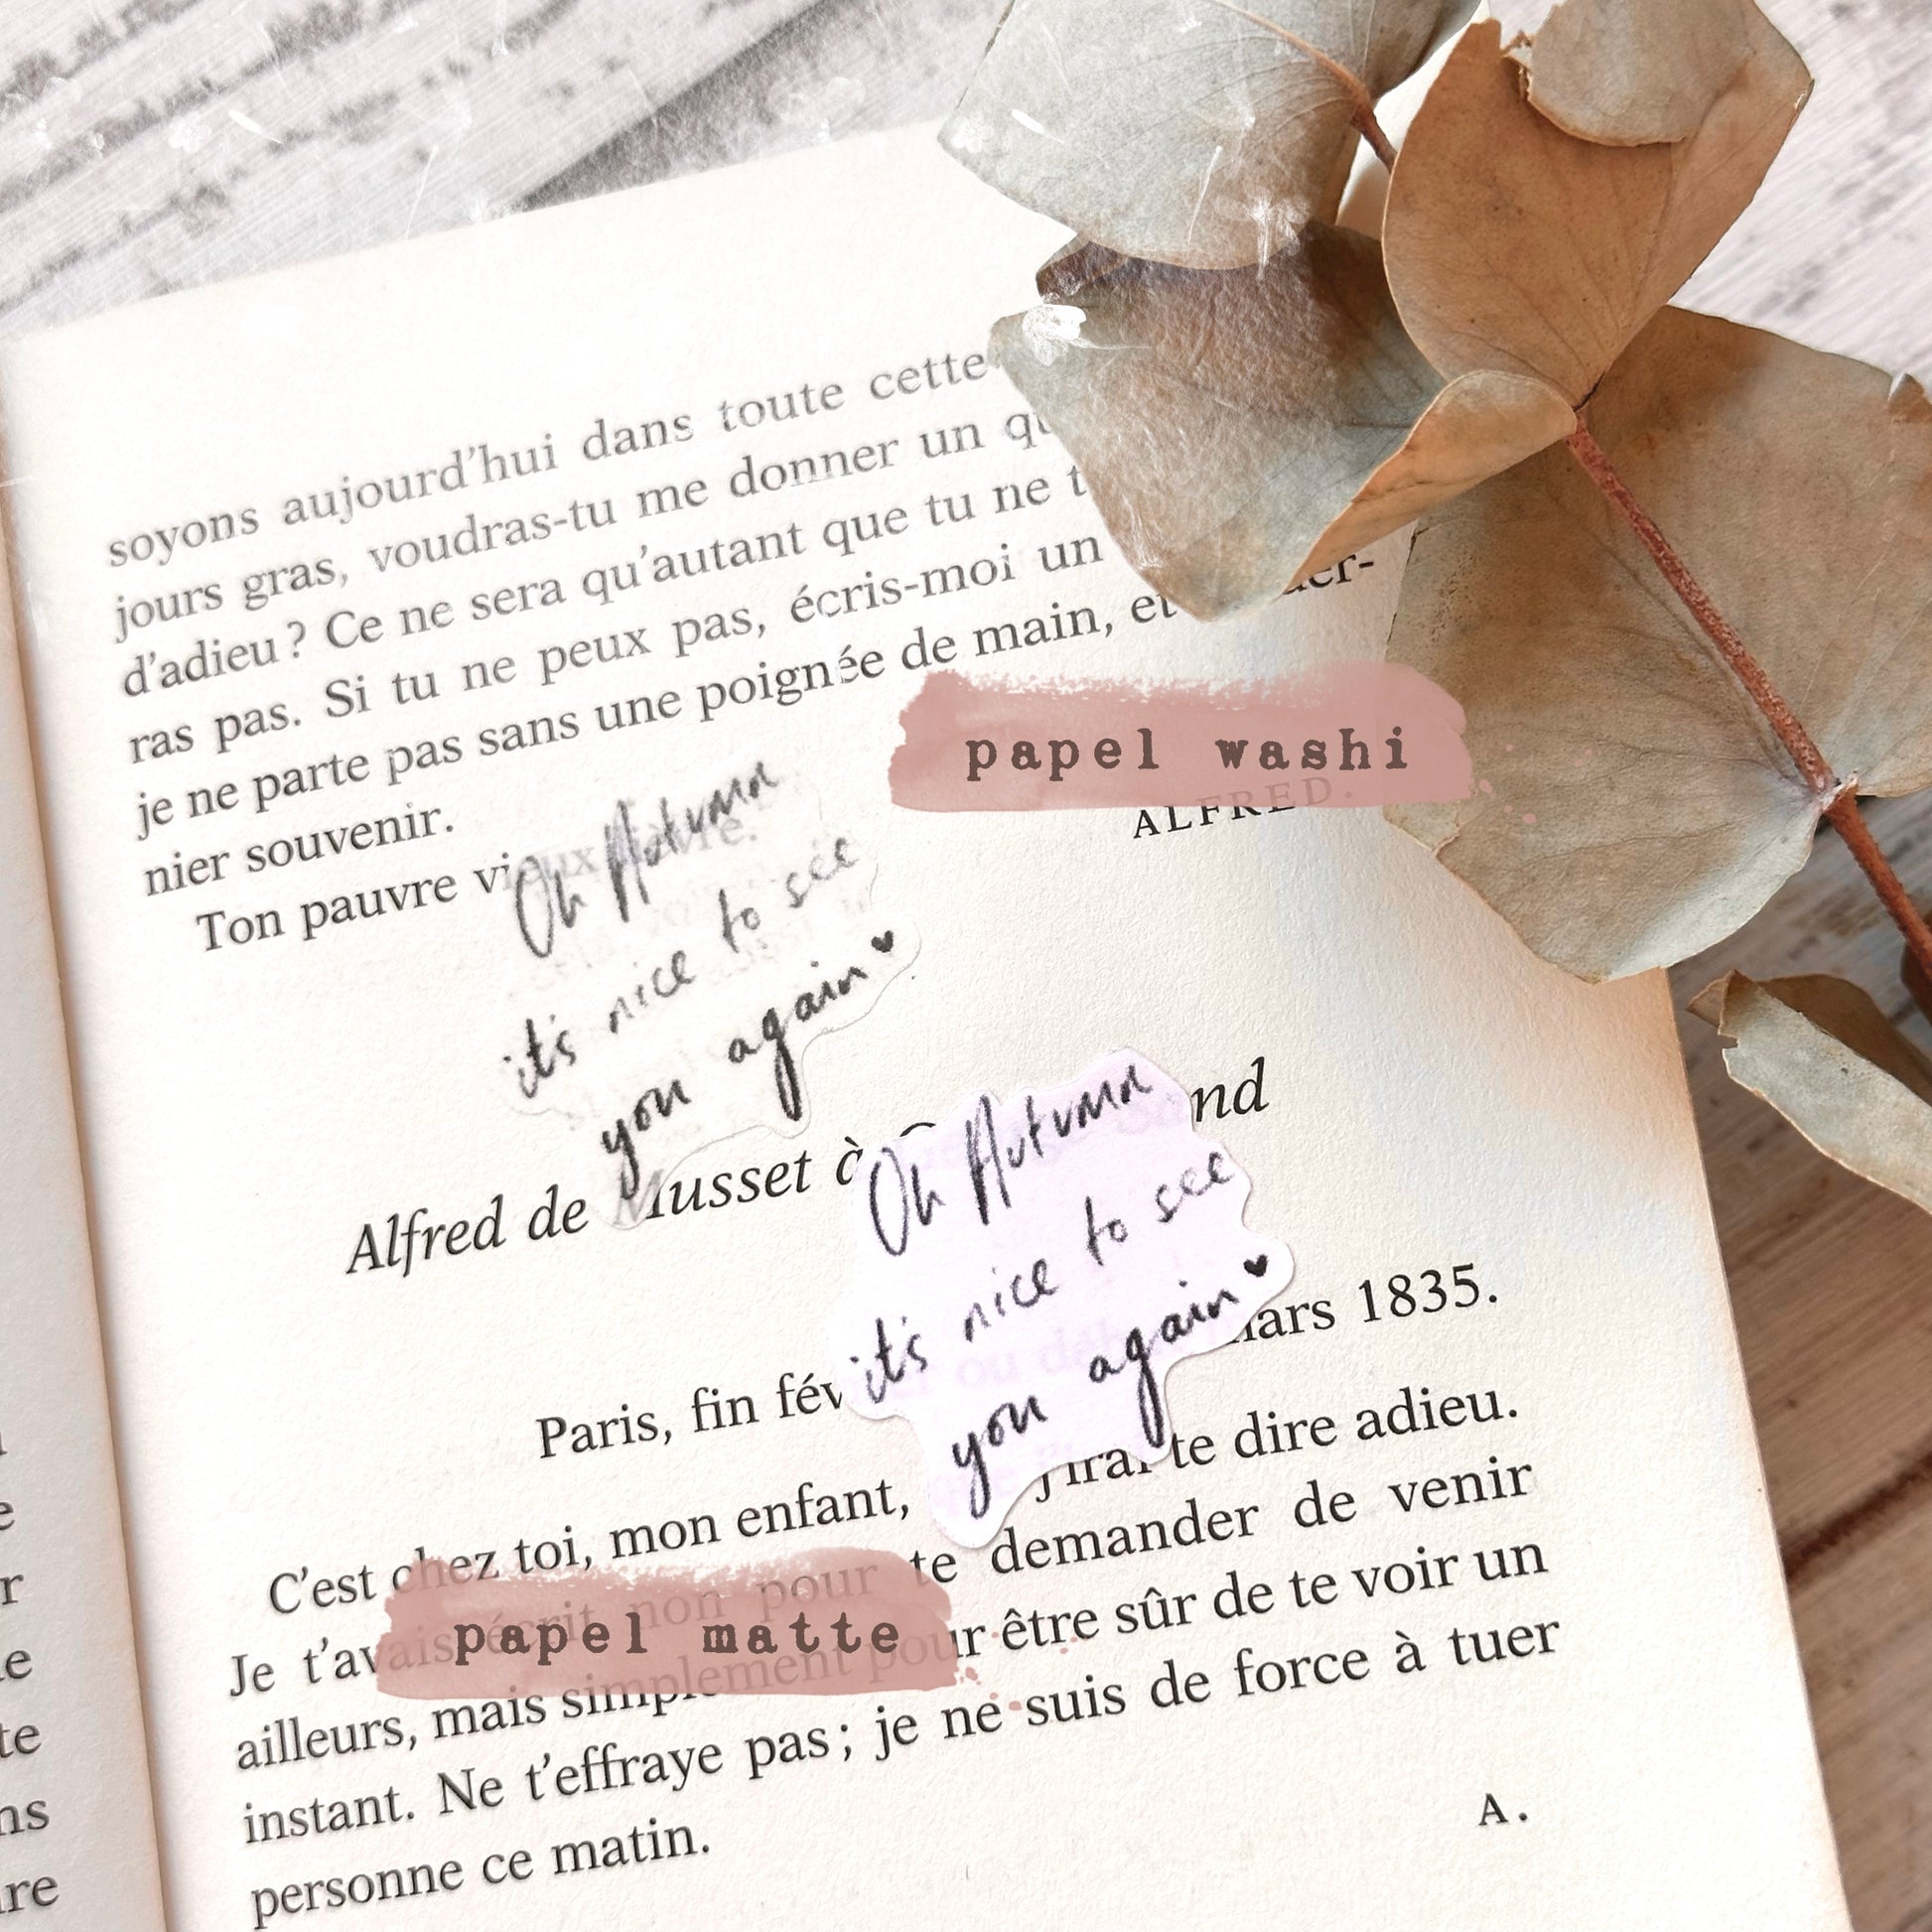 soyons aujourd'hui dans toute cette
jours gras, voudras-tu me donner un
d'adieu ? Ce ne sera qu'autant que tu ne
ras pas. Si tu ne peux pas, écris-moi un
je ne parte pas sans une poignée de main, et
nier souvenir.
papel washi
ALFRED.
Ton pauvre vieux
Oh Autumn
it's nice to see
you again ♥
Alfred de Musset à
Oh Autumn
it's nice to see
you again ♥
Paris, fin mars 1835.
C'est chez toi, mon enfant, j'irai te dire adieu.
Je t'avais écrit non pour te demander de venir
papel matte
ailleurs, mais simplement pour être sûr de te voir un
instant. Ne t'effraye pas ; je ne suis de force à tuer
personne ce matin.
A.